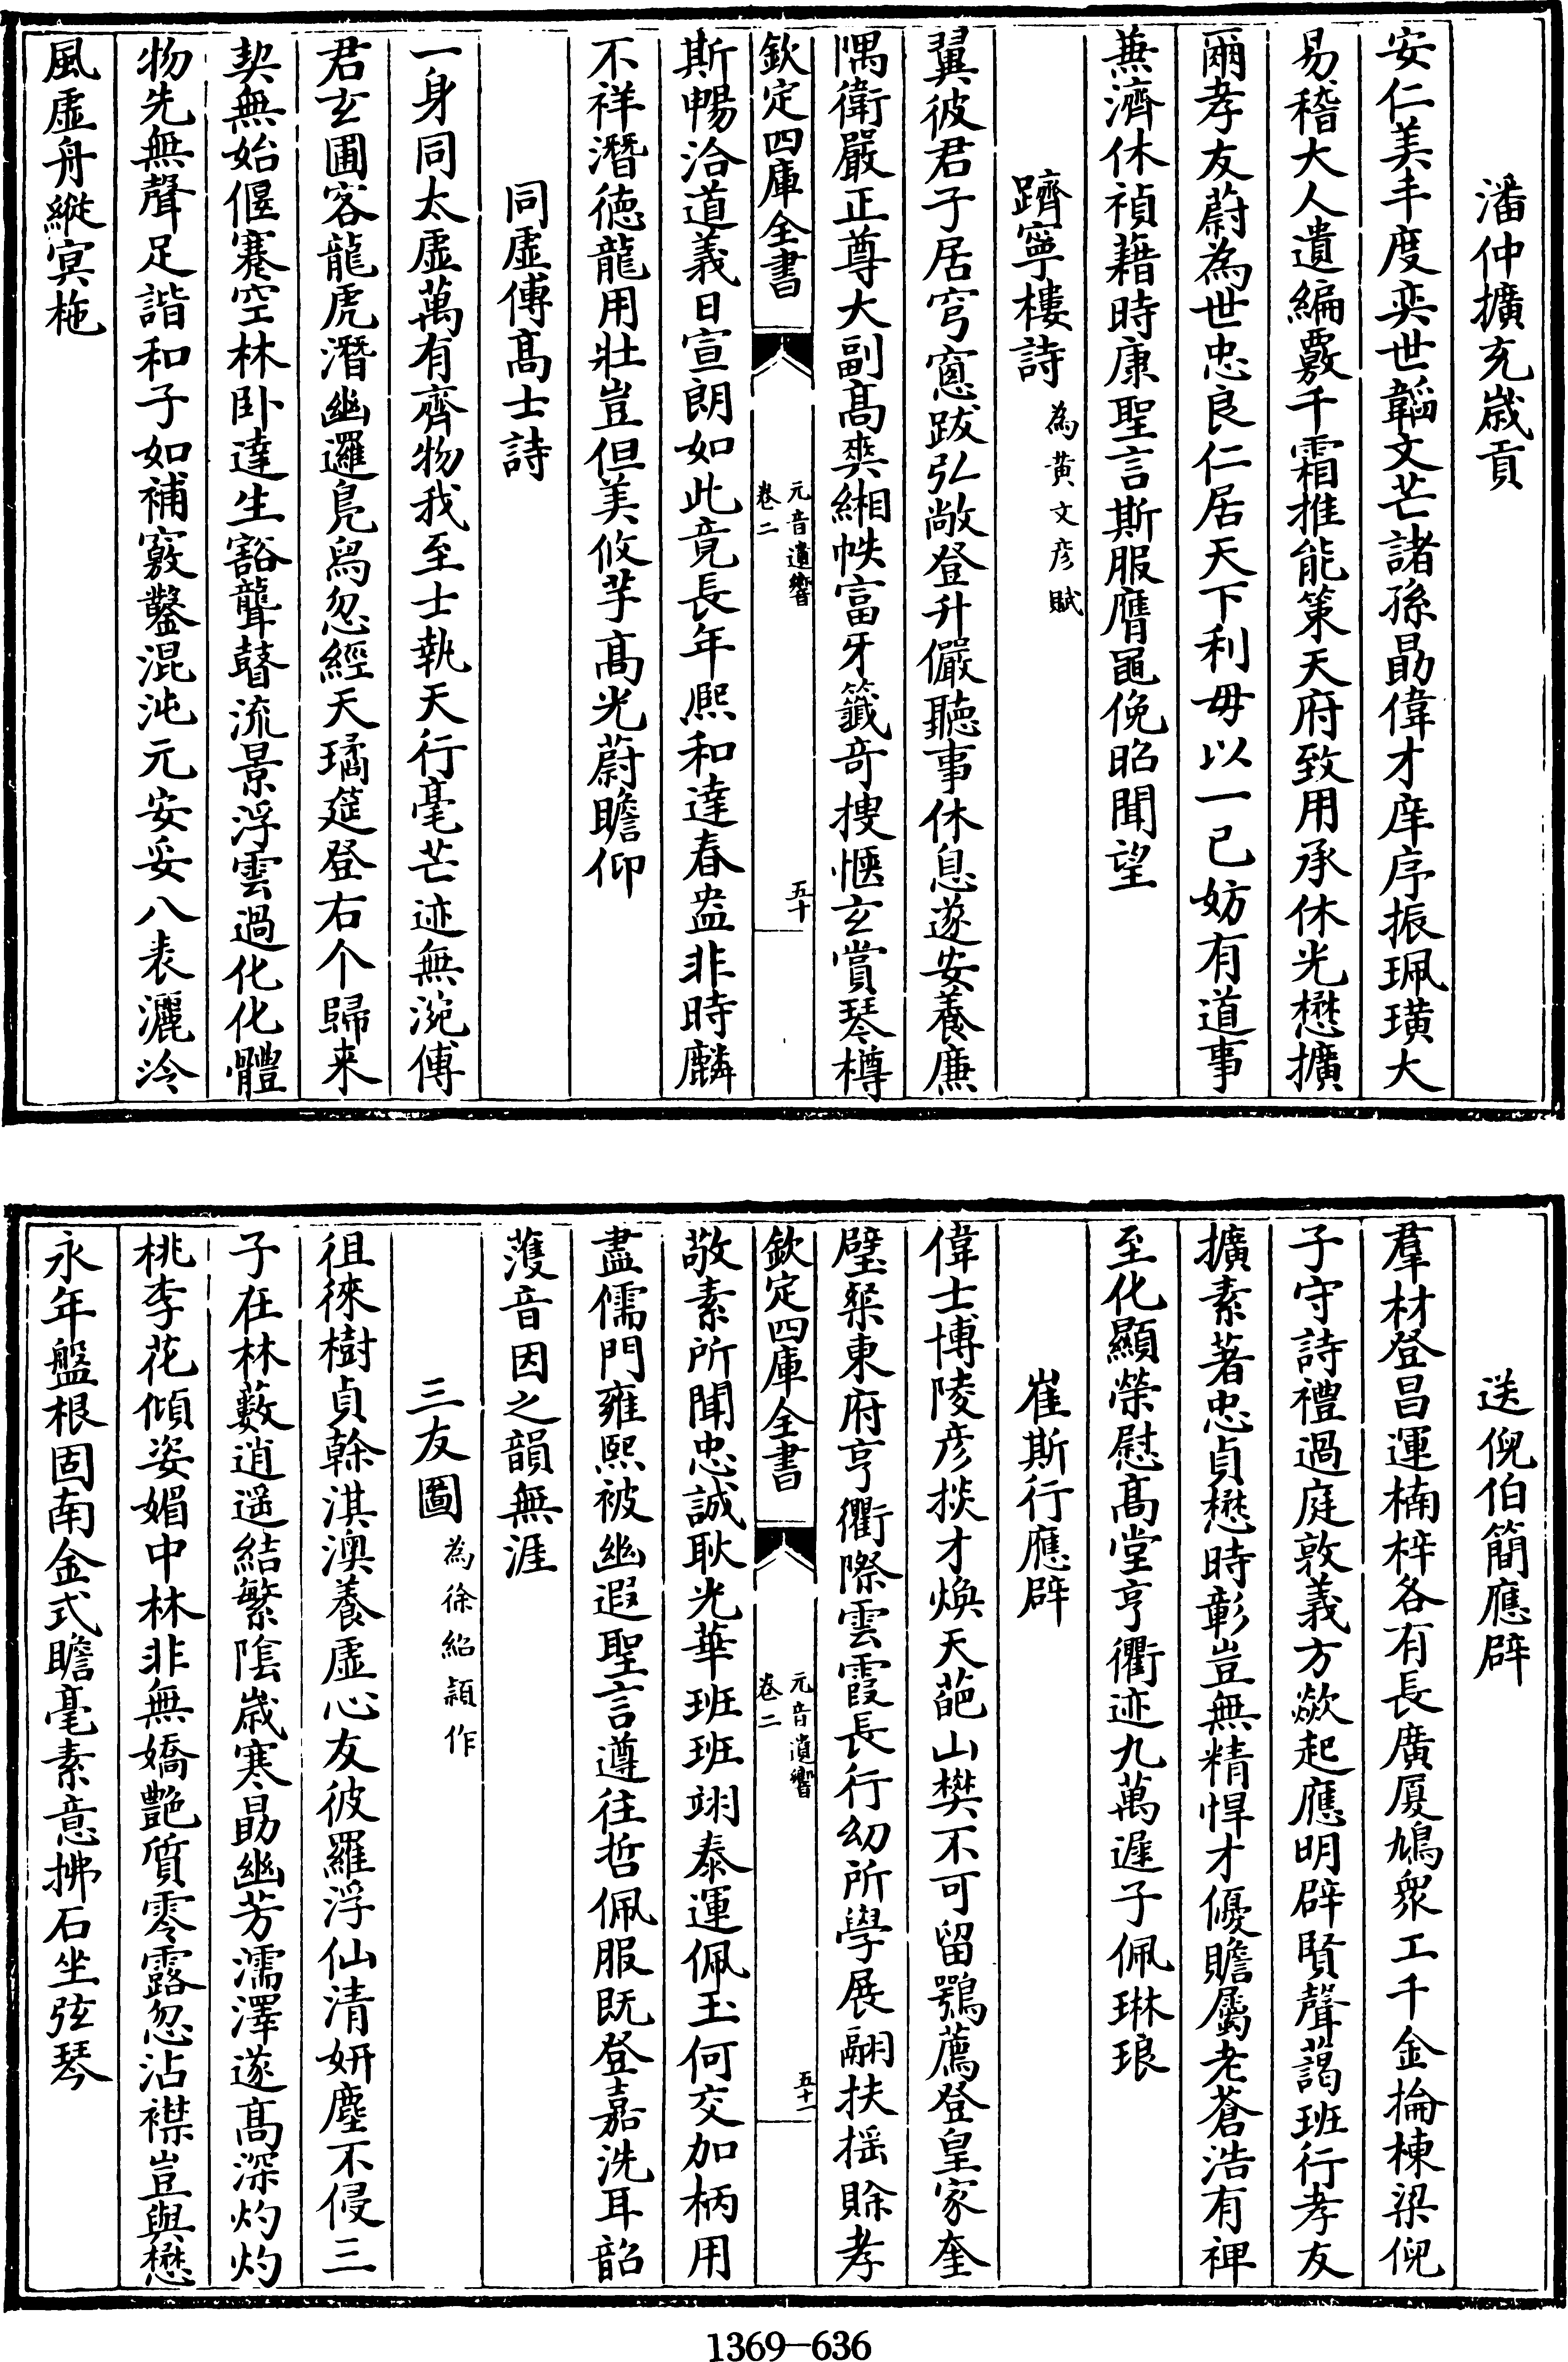 潘仲擴充歲貢
安仁美丰度奕世韜文芒諸孫勗偉才庠序振珮璜大
易稽大人遺編覈千霜推能策天府致用承休光懋擴
爾孝友蔚為世忠良仁居天下利毋以一已妨有道事
蕪濟休禎藉時康聖言斯服膺黽俛昭聞望
躋寧樓詩為黄文彦賦
翼彼君子居穹窻跋弘敞登升儼聽事休息遂安養廉
隅衛嚴正尊大副髙爽緗帙富牙籤奇搜愜玄賞琴樽
欽定四庫全書
元音遺響
卷二
五十
斯暢洽道義日宣朗如此竟長年熙和達春盎非時麟
不祥潛徳龍用壯豈但美攸芋髙光蔚瞻仰
同虚傅髙士詩
一身同太虚萬有齊物我至士執天行毫芒迹無涴傅
君玄圃客龍虎潛幽邏鳬舄忽經天璚筵登右个歸来
契無始偃蹇空林卧達生豁聾瞽流景浮雲過化化體
物先無聲足諧和子如補竅鑿混沌元安妥八表灑泠
風虚舟縱㝠柂
送倪伯簡應辟
羣材登昌運楠梓各有長廣厦鳩衆工千金掄棟梁倪
子守詩禮過庭敦義方歘起應明辟賢聲藹班行孝友
擴素著忠貞懋時彰豈無精悍才優贍屬老蒼浩有裨
至化顯榮慰髙堂亨衢迹九萬遲子佩琳琅
崔斯行應辟
偉士博陵彦掞才煥天葩山樊不可留鶚薦登皇家奎
璧粲東府亨衢際雲霞長行幼所學展翮扶摇賒孝
欽定四庫全書
元音遺響
卷二
五十一
敬素所聞忠誠耿光華班班翊泰運佩玉何交加柄用
盡儒門雍熙被幽遐聖言遵往哲佩服既登嘉洗耳韶
濩音因之韻無涯
三友圖為徐紹頴作
徂徠樹貞榦淇澳養虚心友彼羅浮仙清妍塵不侵三
子在林藪逍遥結繁隂歳寒勗幽芳濡澤遂髙深灼灼
桃李花傾姿媚中林非無嬌艷質零露忽沾襟豈與懋
永年盤根固南金式瞻毫素意拂石坐弦琴
1369-636